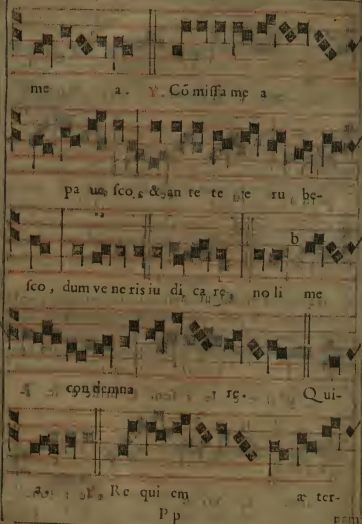 me a. ℣. Cōmissa me a
pa ue sco, & an te te e ru be-
sco, dum ve ne ris iu di ca re, no li me
condemna re. Qui-
a. ℣. Re qui em æ ter-
Pp nam